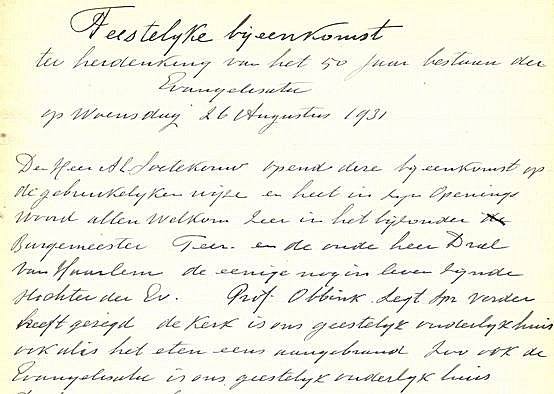 Feestelyke byeenkomst
ter herdenking van het 50 Jaar bestaan der
Evangelisatie
op Woensdag 26 Augustus 1931
De Heer Al. Soetekouw opend deze byeenkomst op
de gebruikelyken wijze en heet in zyn Openings
woord allen Welkom zeer in het byzonder de
Burgemeester Teer en de oude heer Dral
van Haarlem de eenige nog in leven zynde
stichter der Ev. Prof. Obbink zegt spr verder
heeft gezegd de Kerk is ons geestelyk ouderlyk huis
ook al is het eten eens aangebrand zoo ook de
Evangelisatie is ons geestelyk ouderlyk huis